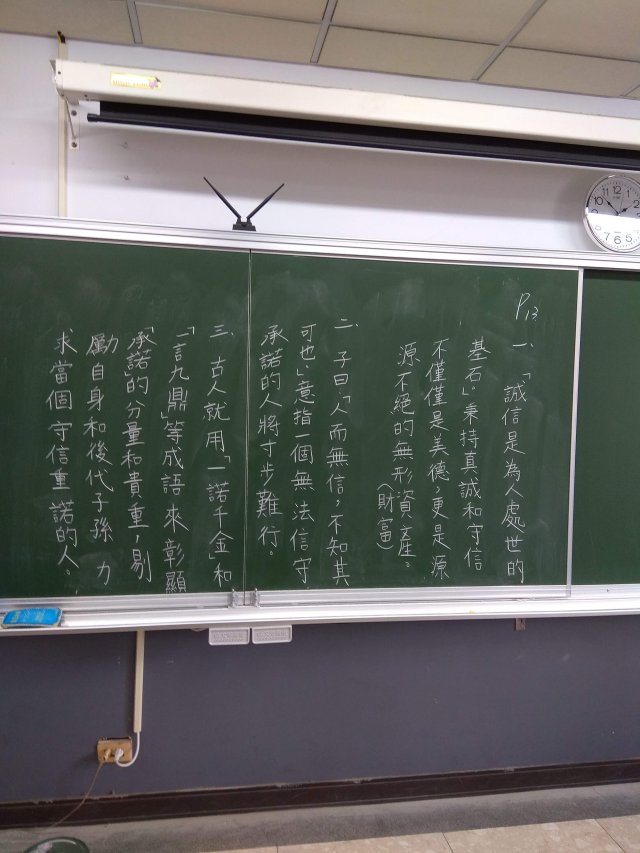 P13
一、「誠信是為人處世的
基石」秉持真誠和守信
不僅僅是美德，更是源
源不絕的無形資產。
（財富）
二、子曰「人而無信，不知其
可也」意指一個無法信守
承諾的人將寸步難行。
三、古人就用「一諾千金」和
「一言九鼎」等成語來彰顯
「承諾」的分量和貴重，剔
勵自身和後代子孫力
求當個守信重諾的人。
12
1
2
5
6
7
8
9
10
11